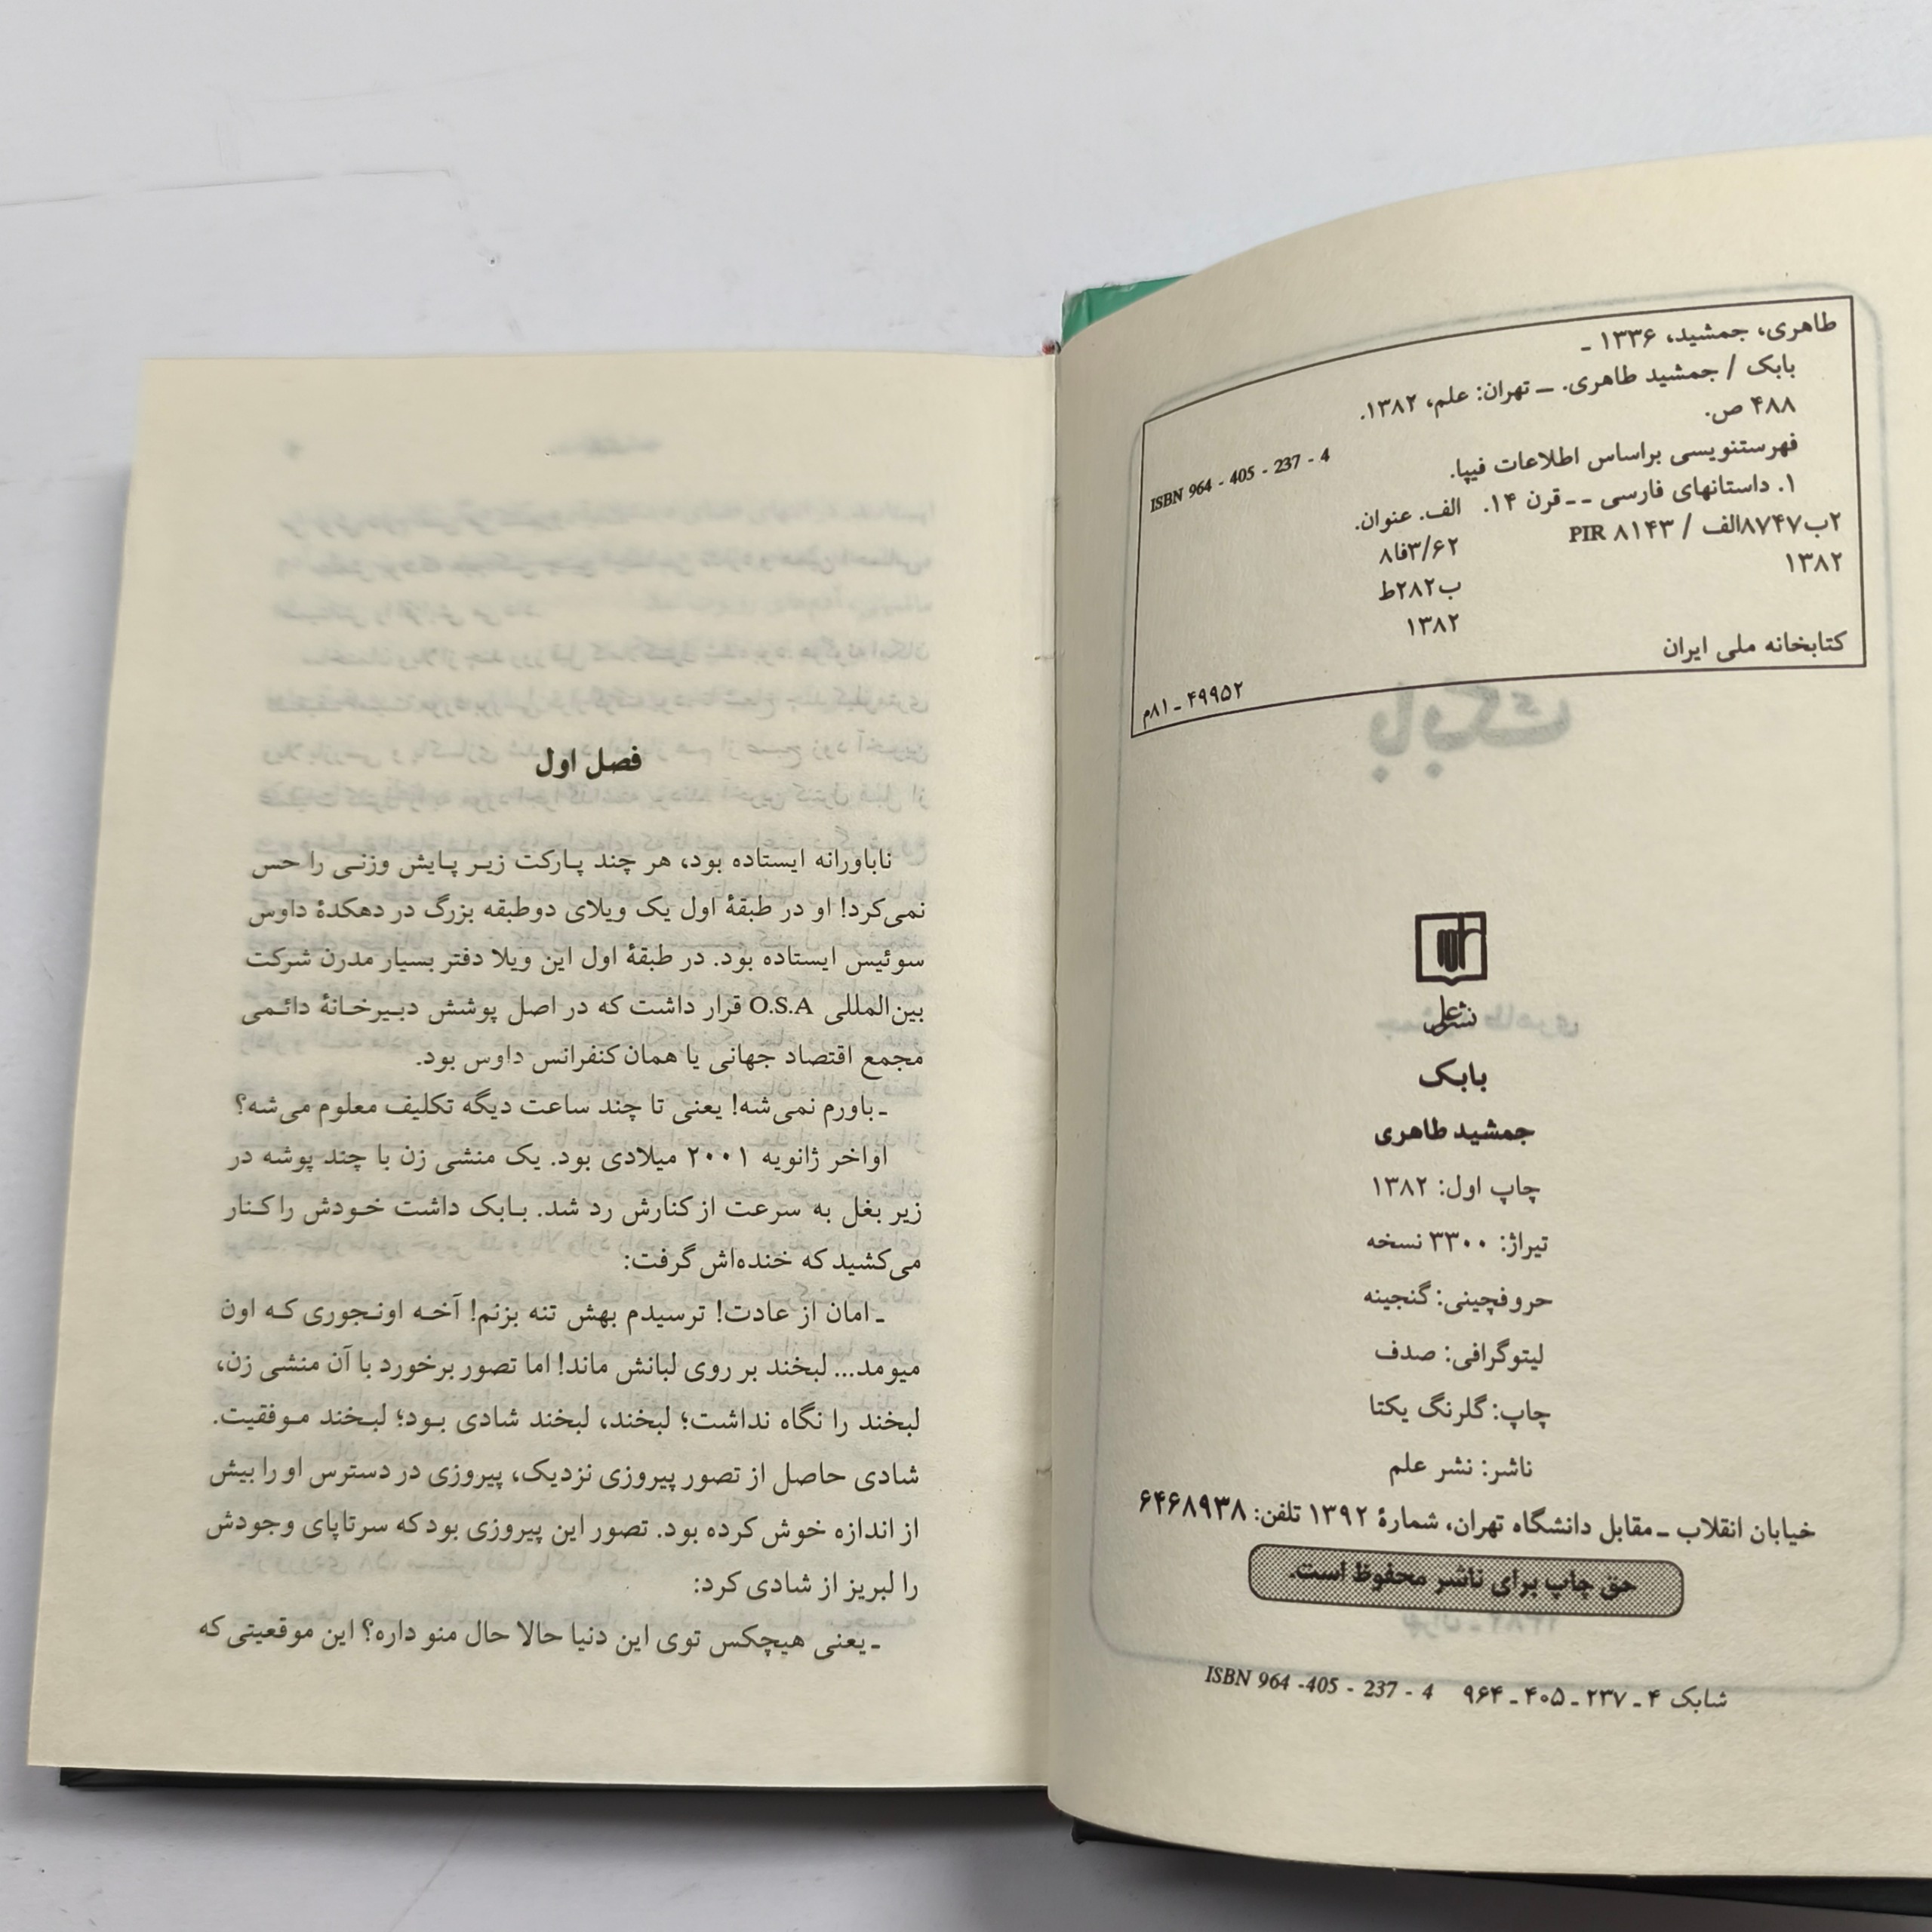 طاهری، جمشید، ۱۳۳۶ ـ
بابک / جمشید طاهری. ــ تهران: علم، ۱۳۸۲.
۴۸۸ ص.
ISBN 964 - 405 - 237 - 4
فهرستنویسی براساس اطلاعات فیپا.
۱. داستانهای فارسی ــ قرن ۱۴. الف. عنوان.
۲ب۸۷۴۷الف / PIR ۸۱۴۳ ۸فا۳/۶۲
۱۳۸۲ ب۲۸۲ط
۱۳۸۲
کتابخانه ملی ایران
۴۹۹۵۲ ـ ۸۱م
نشر علم
بابک
جمشید طاهری
چاپ اول: ۱۳۸۲
تیراژ: ۳۳۰۰ نسخه
حروفچینی: گنجینه
لیتوگرافی: صدف
چاپ: گلرنگ یکتا
ناشر: نشر علم
خیابان انقلاب ـ مقابل دانشگاه تهران، شمارهٔ ۱۳۹۲ تلفن: ۶۴۶۸۹۳۸
حق چاپ برای ناشر محفوظ است.
شابک ۴ ـ ۲۳۷ ـ ۴۰۵ ـ ۹۶۴ ISBN 964 -405 - 237 - 4
فصل اول
ناباورانه ایستاده بود، هر چند پارکت زیر پایش وزنی را حس
نمی‌کرد! او در طبقهٔ اول یک ویلای دوطبقه بزرگ در دهکدهٔ داوس
سوئیس ایستاده بود. در طبقهٔ اول این ویلا دفتر بسیار مدرن شرکت
بین‌المللی O.S.A قرار داشت که در اصل پوشش دبیرخانهٔ دائمی
مجمع اقتصاد جهانی یا همان کنفرانس داوس بود.
ـ باورم نمی‌شه! یعنی تا چند ساعت دیگه تکلیف معلوم می‌شه؟
اواخر ژانویه ۲۰۰۱ میلادی بود. یک منشی زن با چند پوشه در
زیر بغل به سرعت از کنارش رد شد. بابک داشت خودش را کنار
می‌کشید که خنده‌اش گرفت:
ـ امان از عادت! ترسیدم بهش تنه بزنم! آخه اونجوری که اون
میومد... لبخند بر روی لبانش ماند! اما تصور برخورد با آن منشی زن،
لبخند را نگاه نداشت؛ لبخند، لبخند شادی بود؛ لبخند موفقیت.
شادی حاصل از تصور پیروزی نزدیک، پیروزی در دسترس او را بیش
از اندازه خوش کرده بود. تصور این پیروزی بود که سرتاپای وجودش
را لبریز از شادی کرد:
ـ یعنی هیچکس توی این دنیا حالا حال منو داره؟ این موقعیتی که